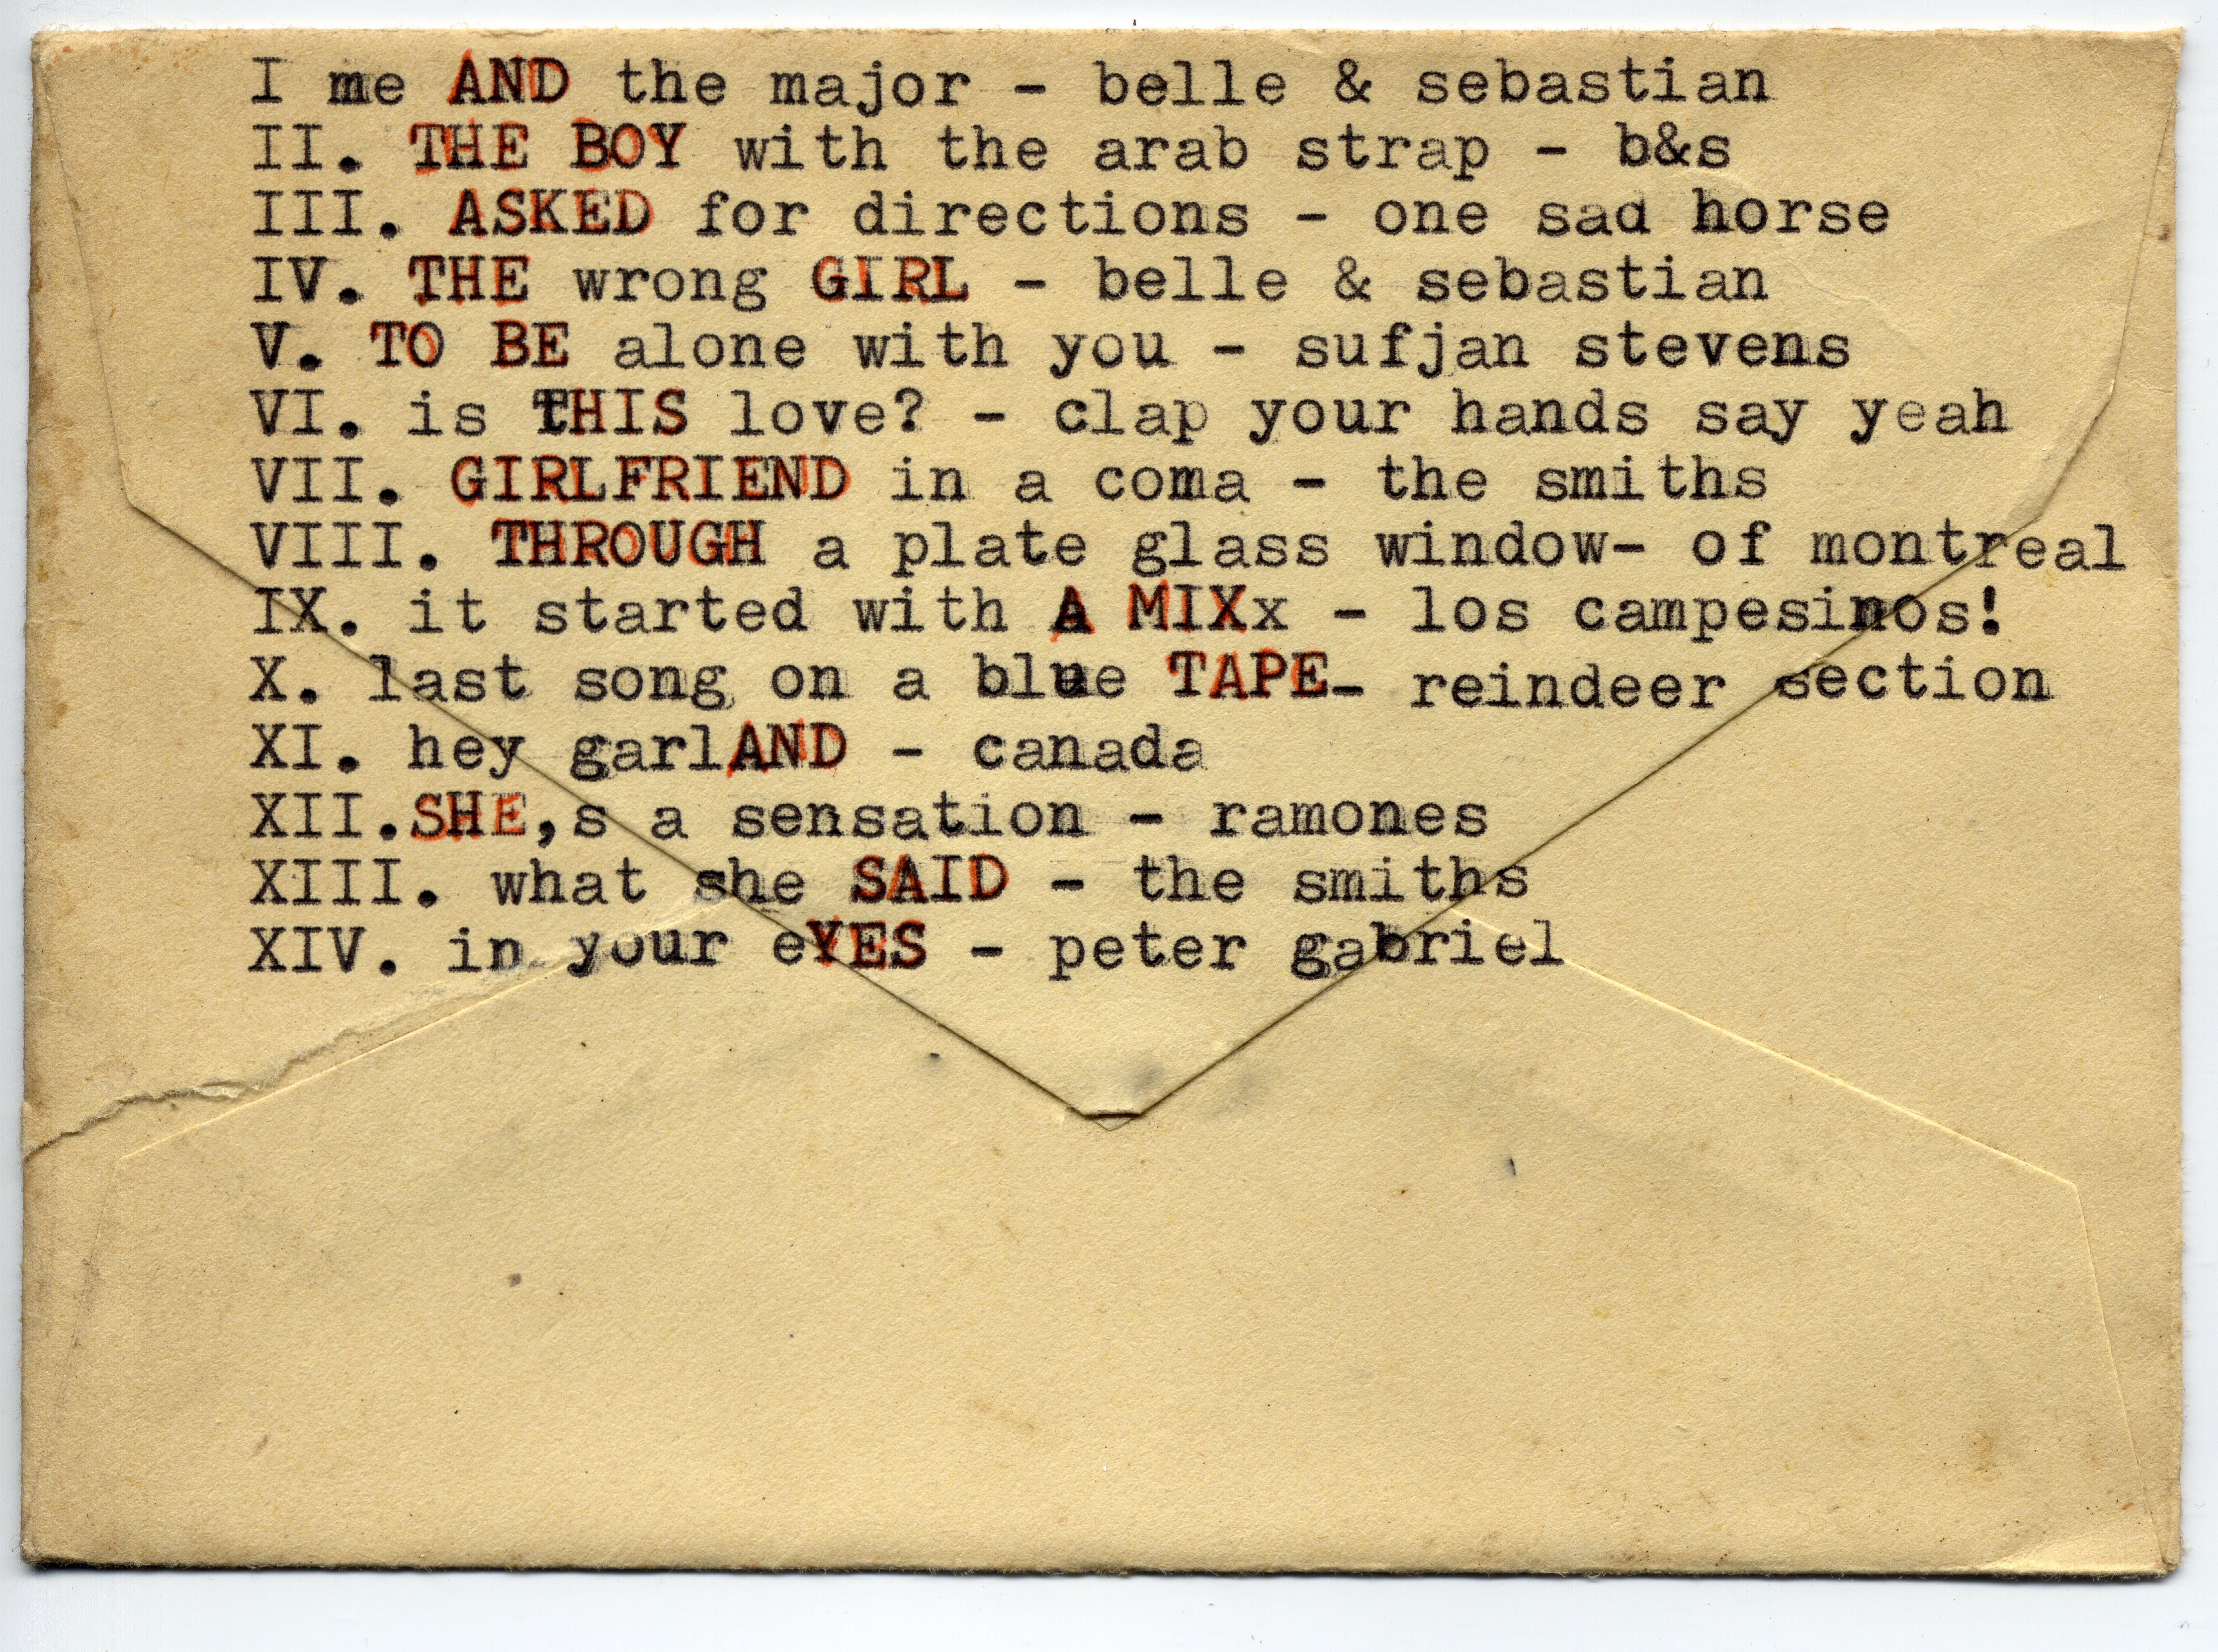 I me AND the major - belle & sebastian
II. THE BOY with the arab strap - b&s
III. ASKED for directions - one sad horse
IV. THE wrong GIRL - belle & sebastian
V. TO BE alone with you - sufjan stevens
VI. is tHIS love? - clap your hands say yeah
VII. GIRLFRIEND in a coma - the smiths
VIII. THROUGH a plate glass window- of montreal
IX. it started with A MIXx - los campesinos!
X. last song on a blue TAPE- reindeer section
XI. hey garlAND - canada
XII.SHE,s a sensation - ramones
XIII. what she SAID - the smiths
XIV. in your eYES - peter gabriel